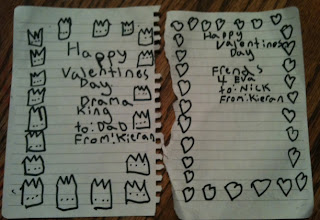 Happy
Valentines
Day
Drama
King
to: DaD
From: Kieran
Happy
Valentines
Day
Frends
4 Eva
to: NICK
From: Kieran